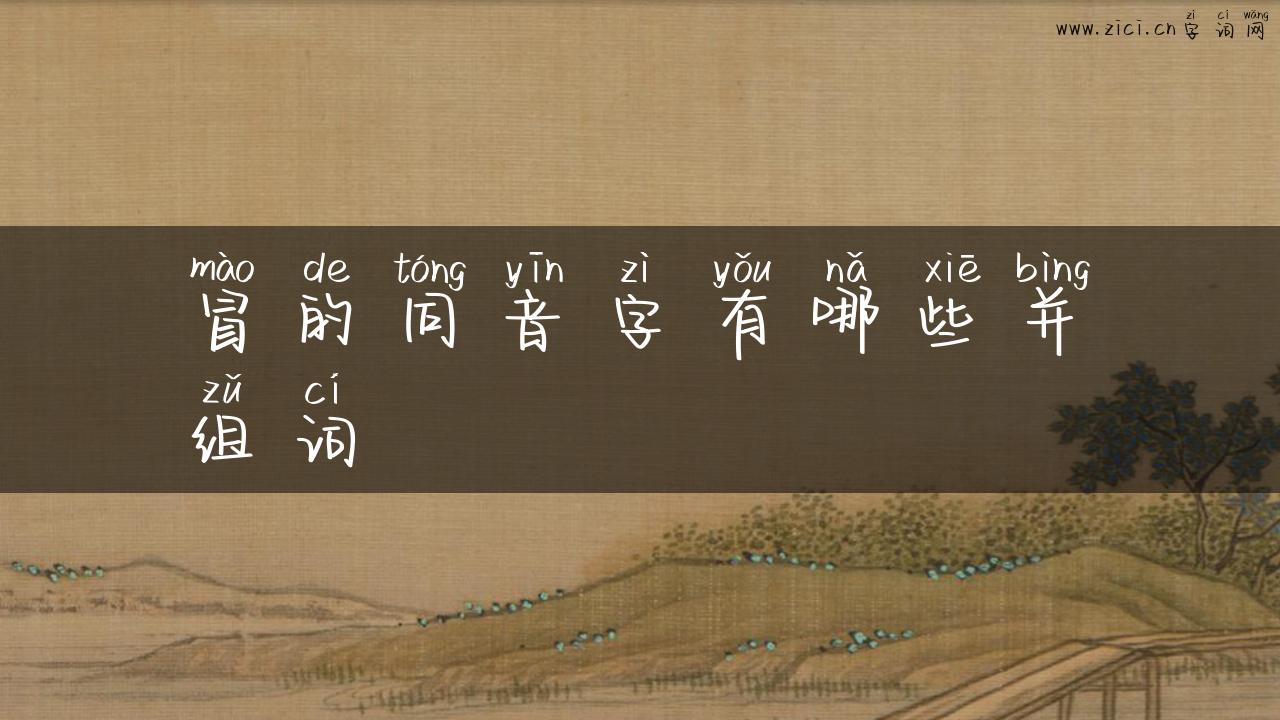 zì cí wǎng
www.zici.cn字词网
mào de tóng yīn zì yǒu nǎ xiē bìng
冒的同音字有哪些并
zǔ cí
组词